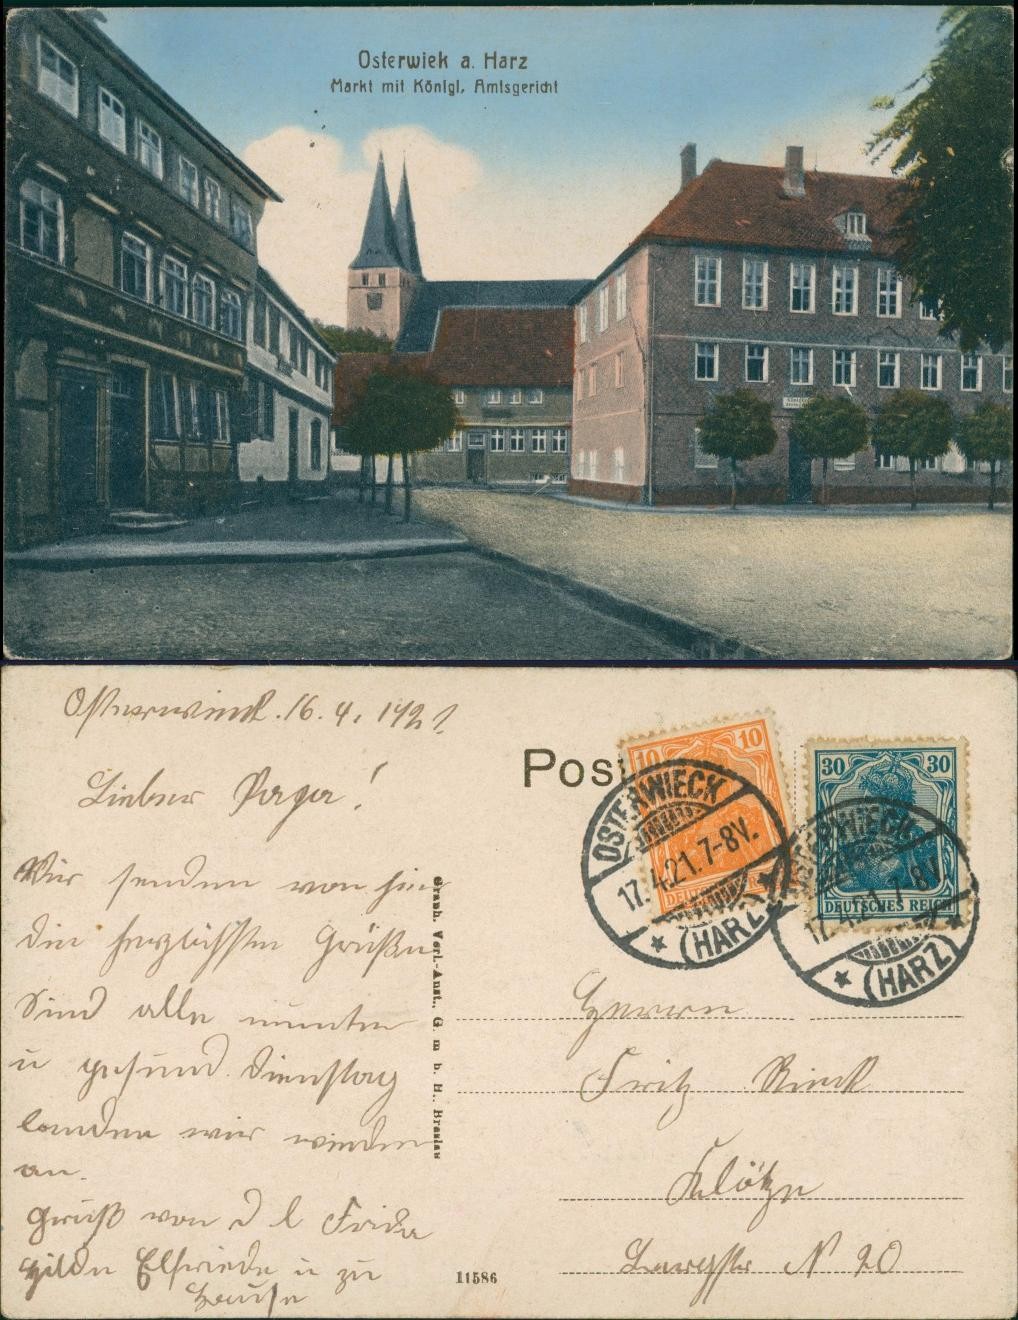 Osterwiek a. Harz
Markt mit Königl. Amtsgericht
Osterwieck. 16. 4. 1921
Lieber Papa!
Wir senden von hier
die herzlichsten Grüße
Sind alle munter
u gesund. Dienstag
landen wir wieder
an.
Gruß von d l Frida
Hilde Elfriede u zu
Hause
Graph. Verl.-Anst., G. m. b. H., Breslau
11586
Pos
10 10
DEUTSCHES R
30 30
DEUTSCHES REICH
OSTERWIECK
17.4.21.7-8V.
(HARZ)
OSTERWIECK
17.4.21.7-8V.
(HARZ)
Herrn
Fritz Rieck
Klötze
N 20